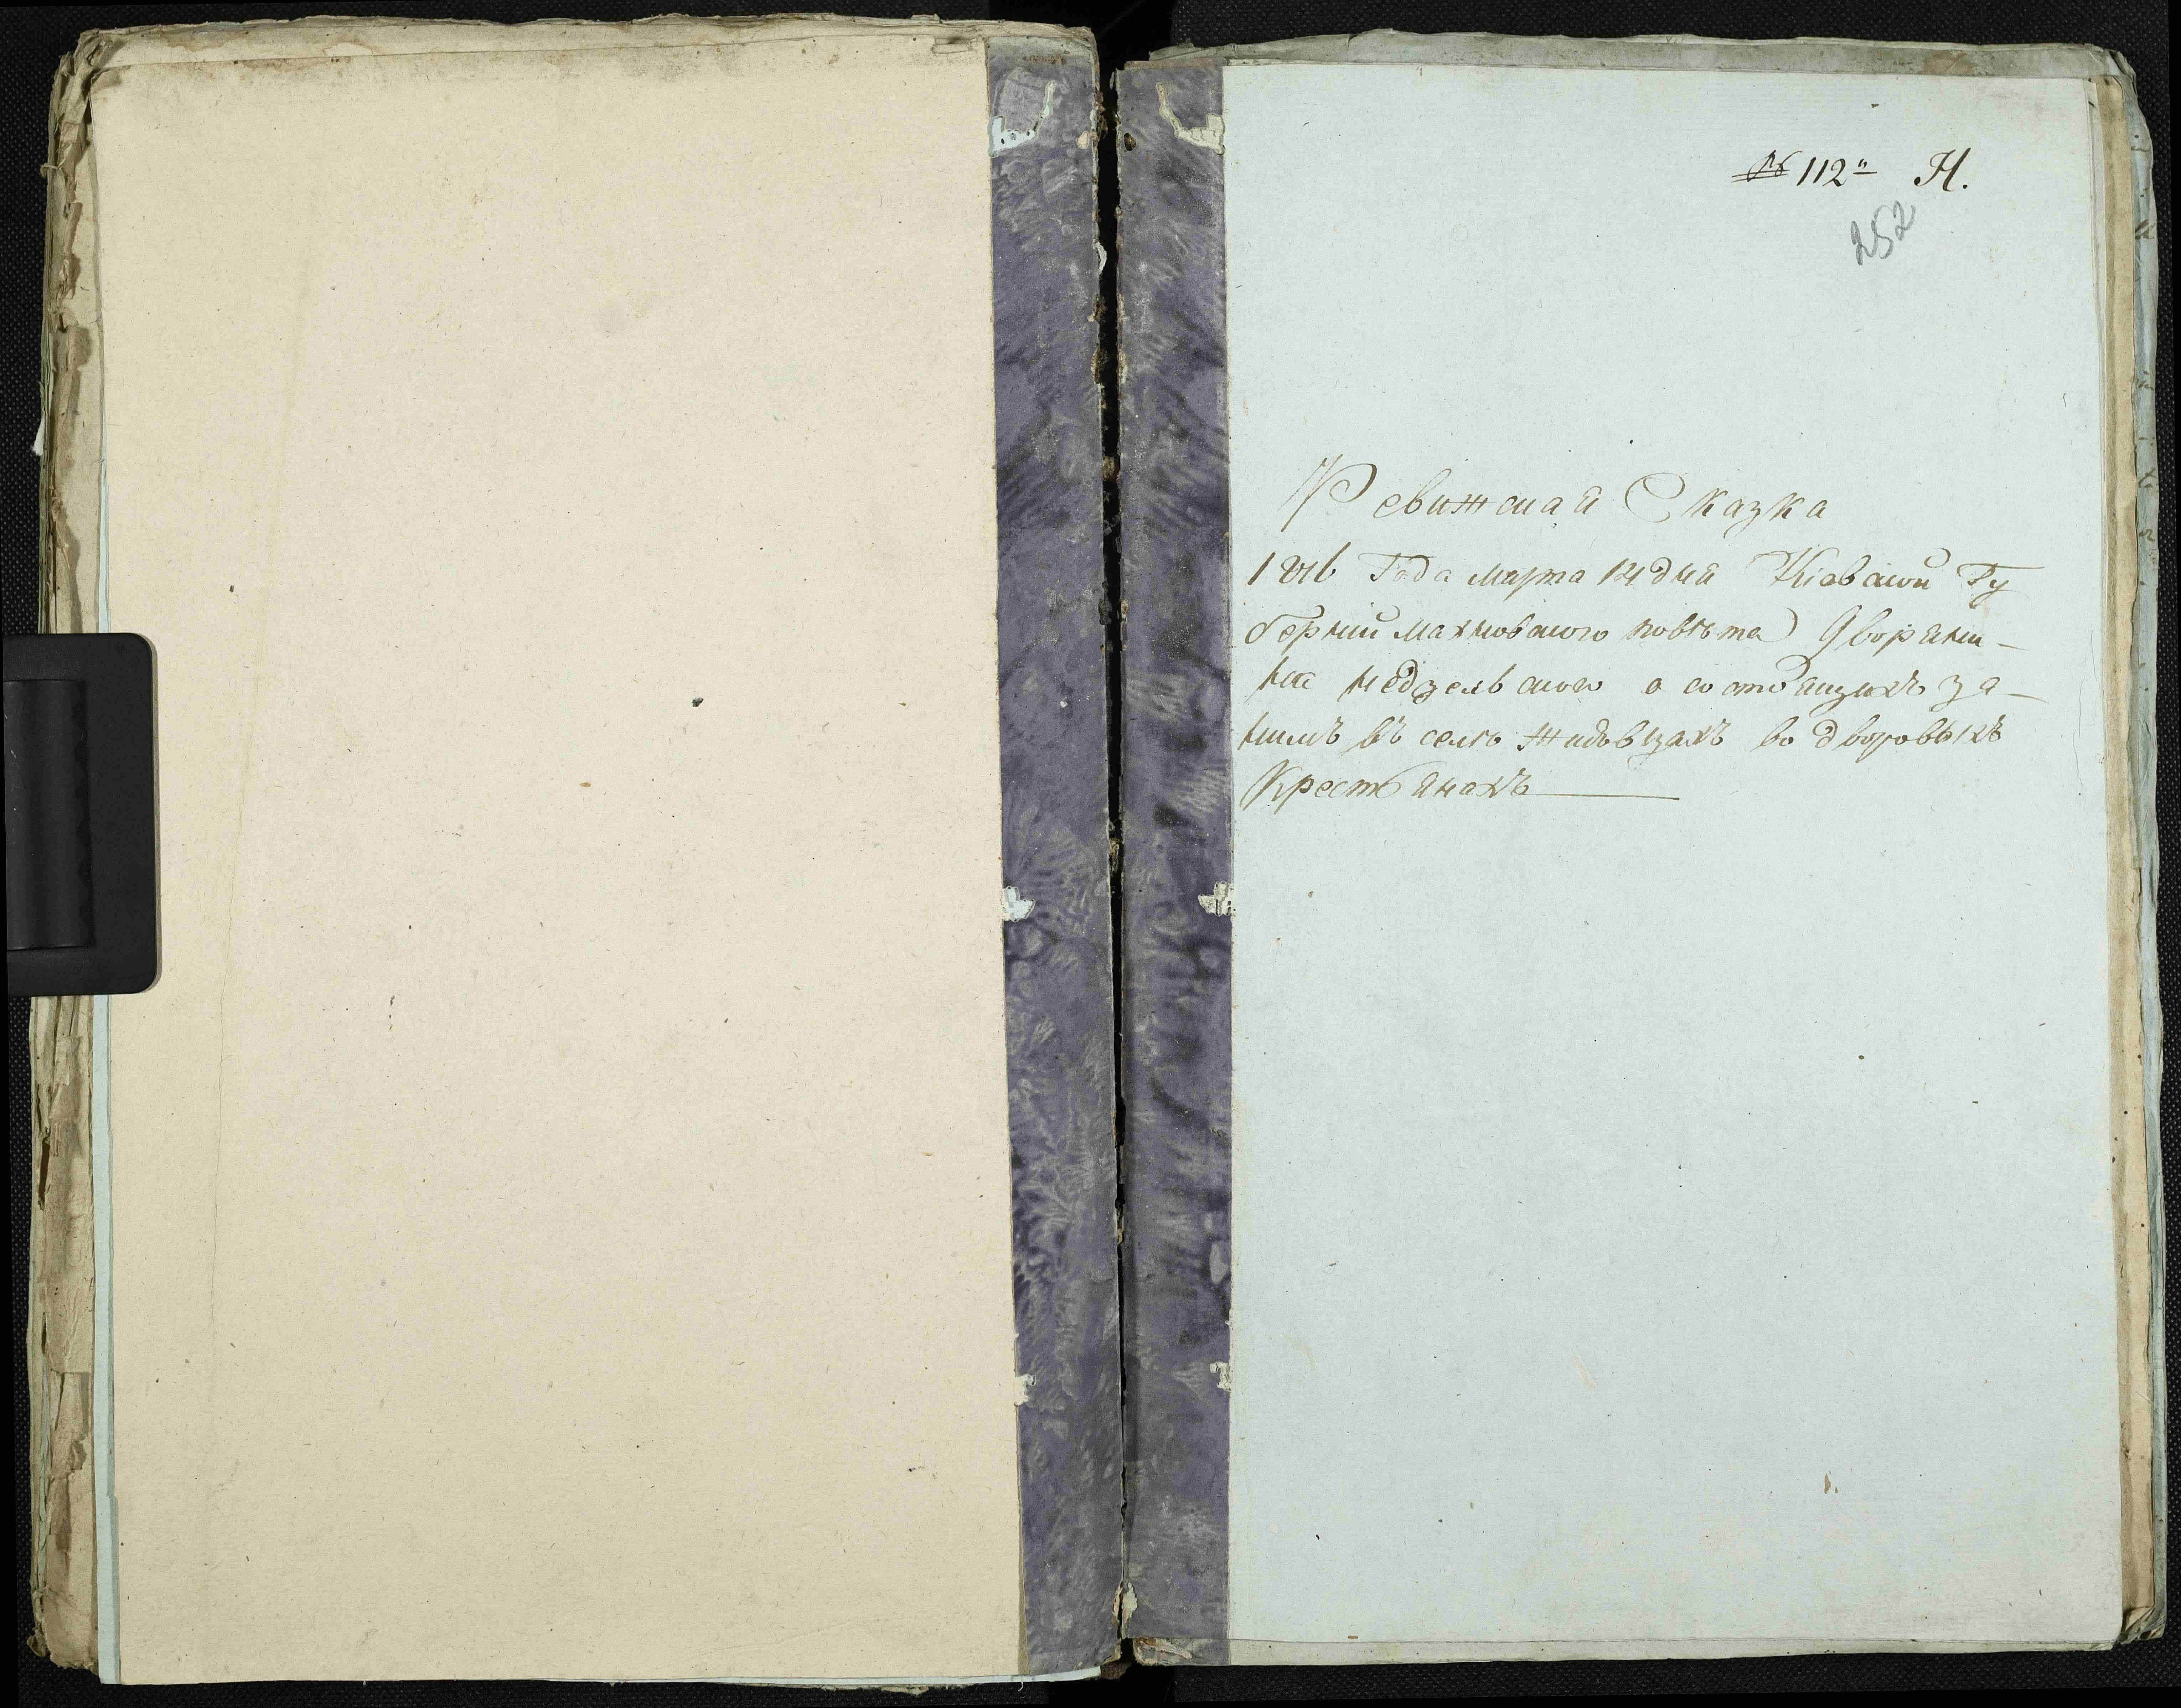 № 112" Н.
252
Ревижская Сказка
1816 Года марта 14 дня Киевской Гу
берний махновского повѣта Дворяни-
на недзельского о состоящихъ за-
нимъ въ селѣ Жидовцахъ во дворовыхъ
Крестьянахъ